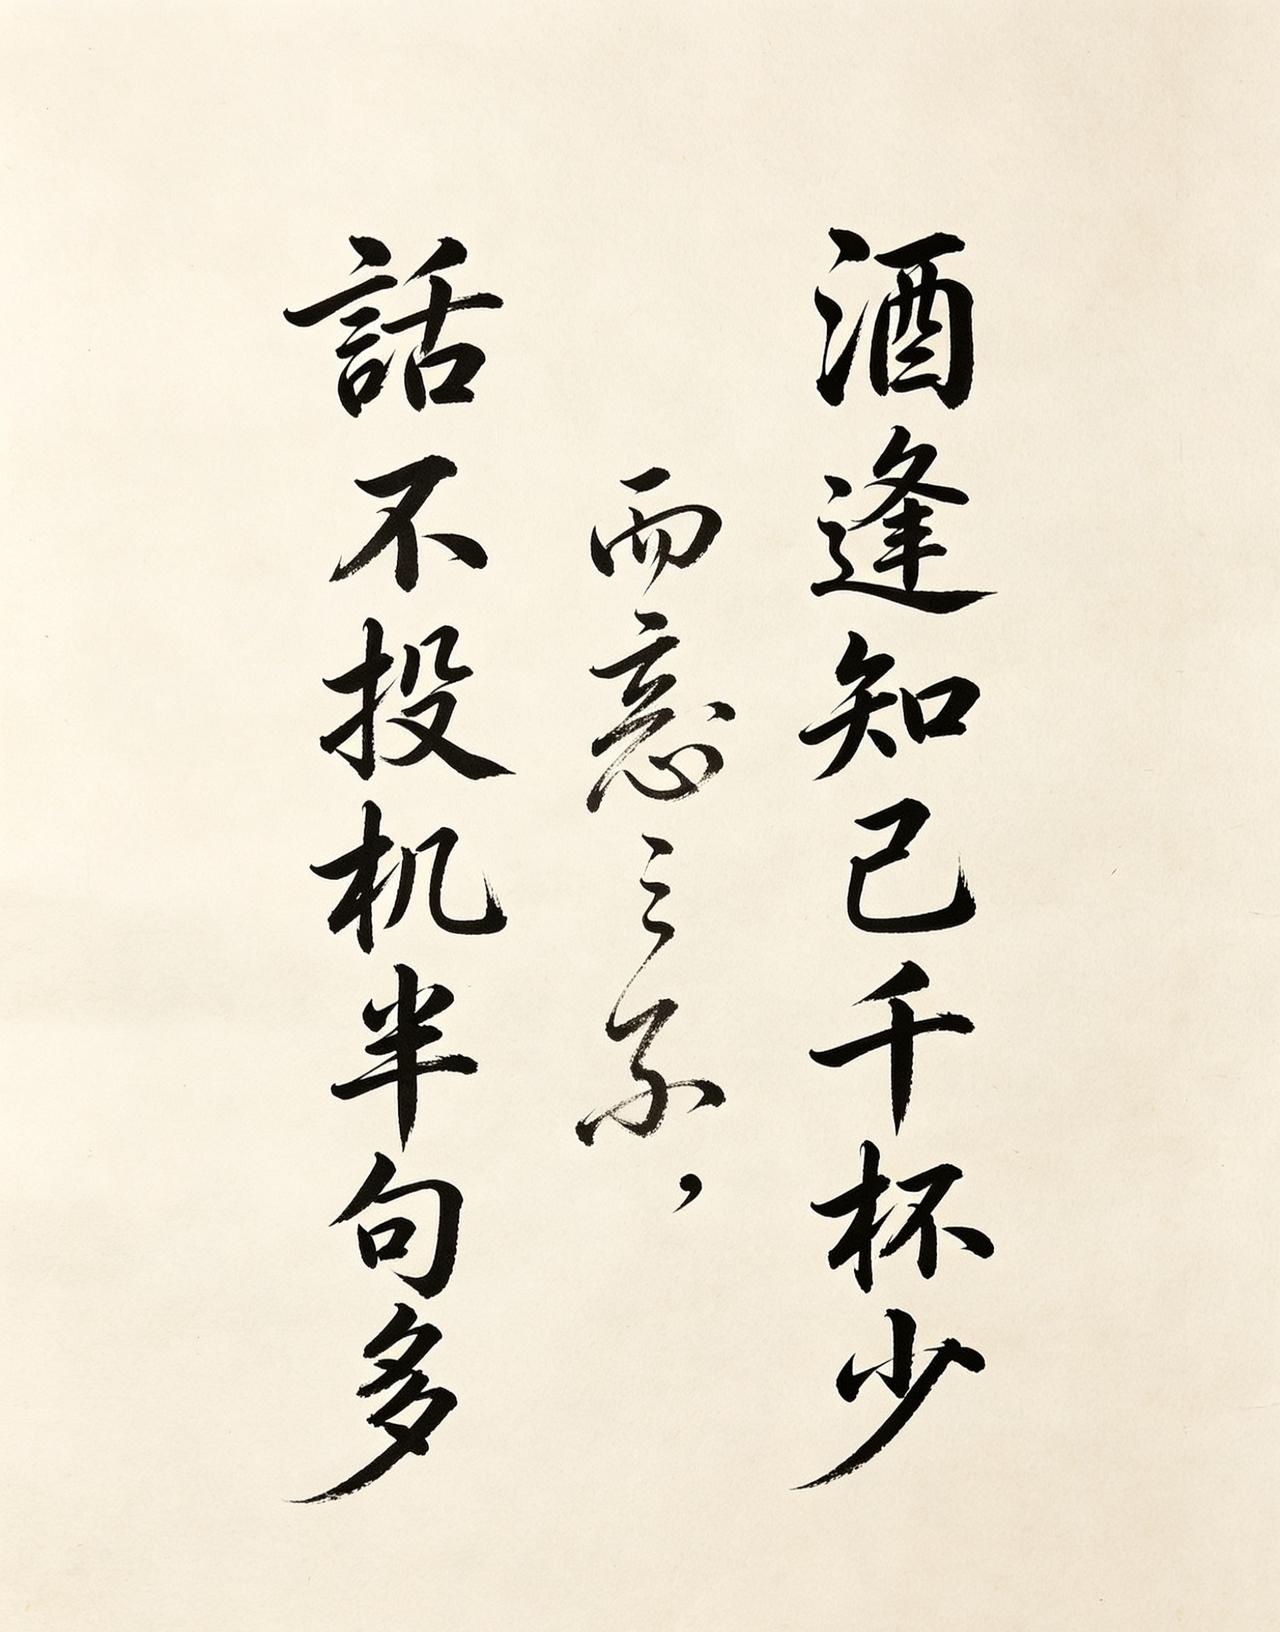 酒逢知己千杯少
而意之不，
話不投机半句多